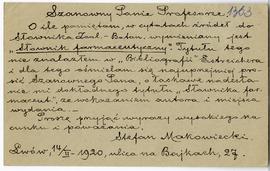 Szanowny Panie Profesorze. 1363
O ile pamiętam, w cytatach źródeł do
Słownika Zool.-Botan, wymieniany jest
„Słownik farmaceutyczny". Tytułu tego
nie znalazłem w „Bibliografii" Estreichera
i dla tego ośmielam się najuprzejmiej prosić
Szanownego Pana, o łaskawe nadesłanie
mi dokładnego tytułu „Słownika farmaceut",
ze wskazaniem autora i miejsca
wydania. —
Proszę przyjąć wyrazy wysokiego szacunku
i poważania.
Stefan Makowiecki
Lwów, 14/II - 1920, ulica na Bajkach, 27.